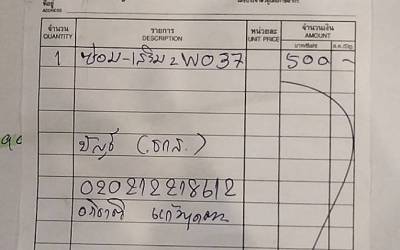 ที่อยู่
ADDRESS
จำนวน รายการ หน่วยละ จำนวนเงิน
QUANTITY DESCRIPTION UNIT PRICE AMOUNT
1 ซ่อม-เสริม 2 W037 500 -
บัญชี (ธกส.)
020212218612